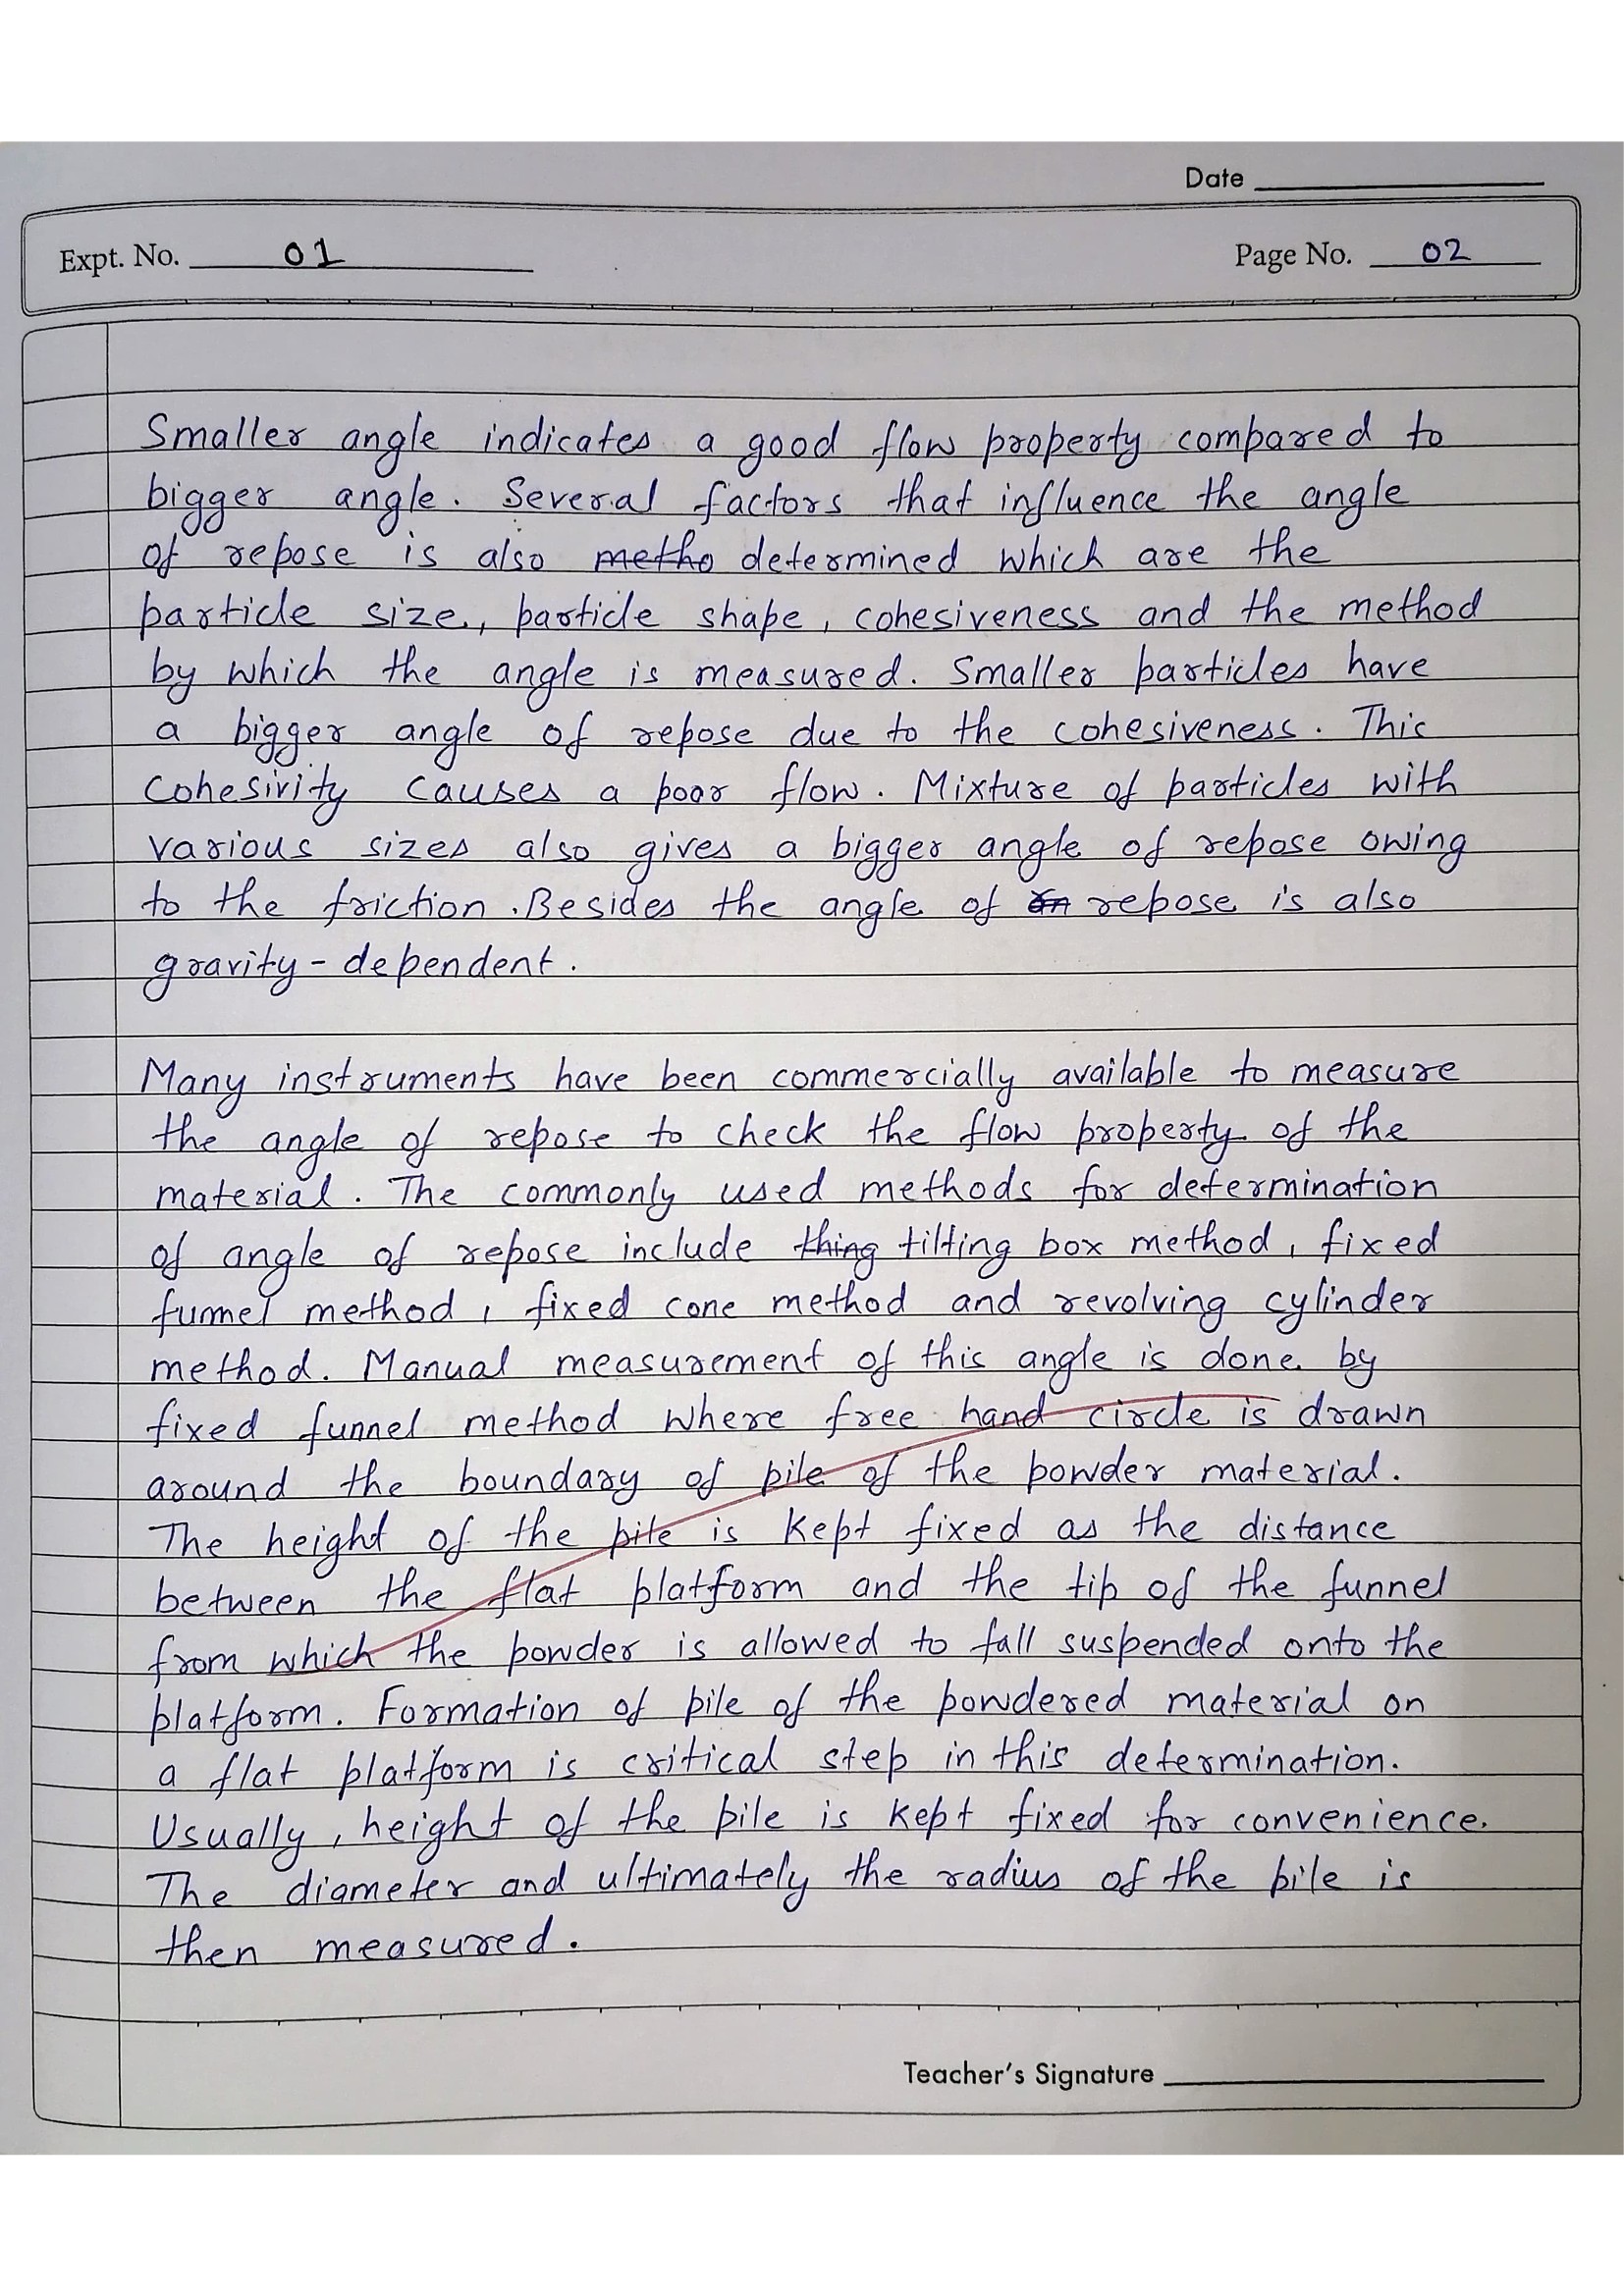 Date
Expt. No. 01 Page No. 02
Smaller angle indicates a good flow property compared to
bigger angle. Several factors that influence the angle
of repose is also metho determined which are the
particle size, particle shape, cohesiveness and the method
by which the angle is measured. Smaller particles have
a bigger angle of repose due to the cohesiveness. This
cohesivity causes a poor flow. Mixture of particles with
various sizes also gives a bigger angle of repose owing
to the friction. Besides the angle of repose is also
gravity-dependent.
Many instruments have been commercially available to measure
the angle of repose to check the flow property of the
material. The commonly used methods for determination
of angle of repose include thing tilting box method, fixed
funnel method, fixed cone method and revolving cylinder
method. Manual measurement of this angle is done by
fixed funnel method where free hand circle is drawn
around the boundary of pile of the powder material.
The height of the pile is kept fixed as the distance
between the flat platform and the tip of the funnel
from which the powder is allowed to fall suspended onto the
platform. Formation of pile of the powdered material on
a flat platform is critical step in this determination.
Usually, height of the pile is kept fixed for convenience.
The diameter and ultimately the radius of the pile is
then measured.
Teacher's Signature